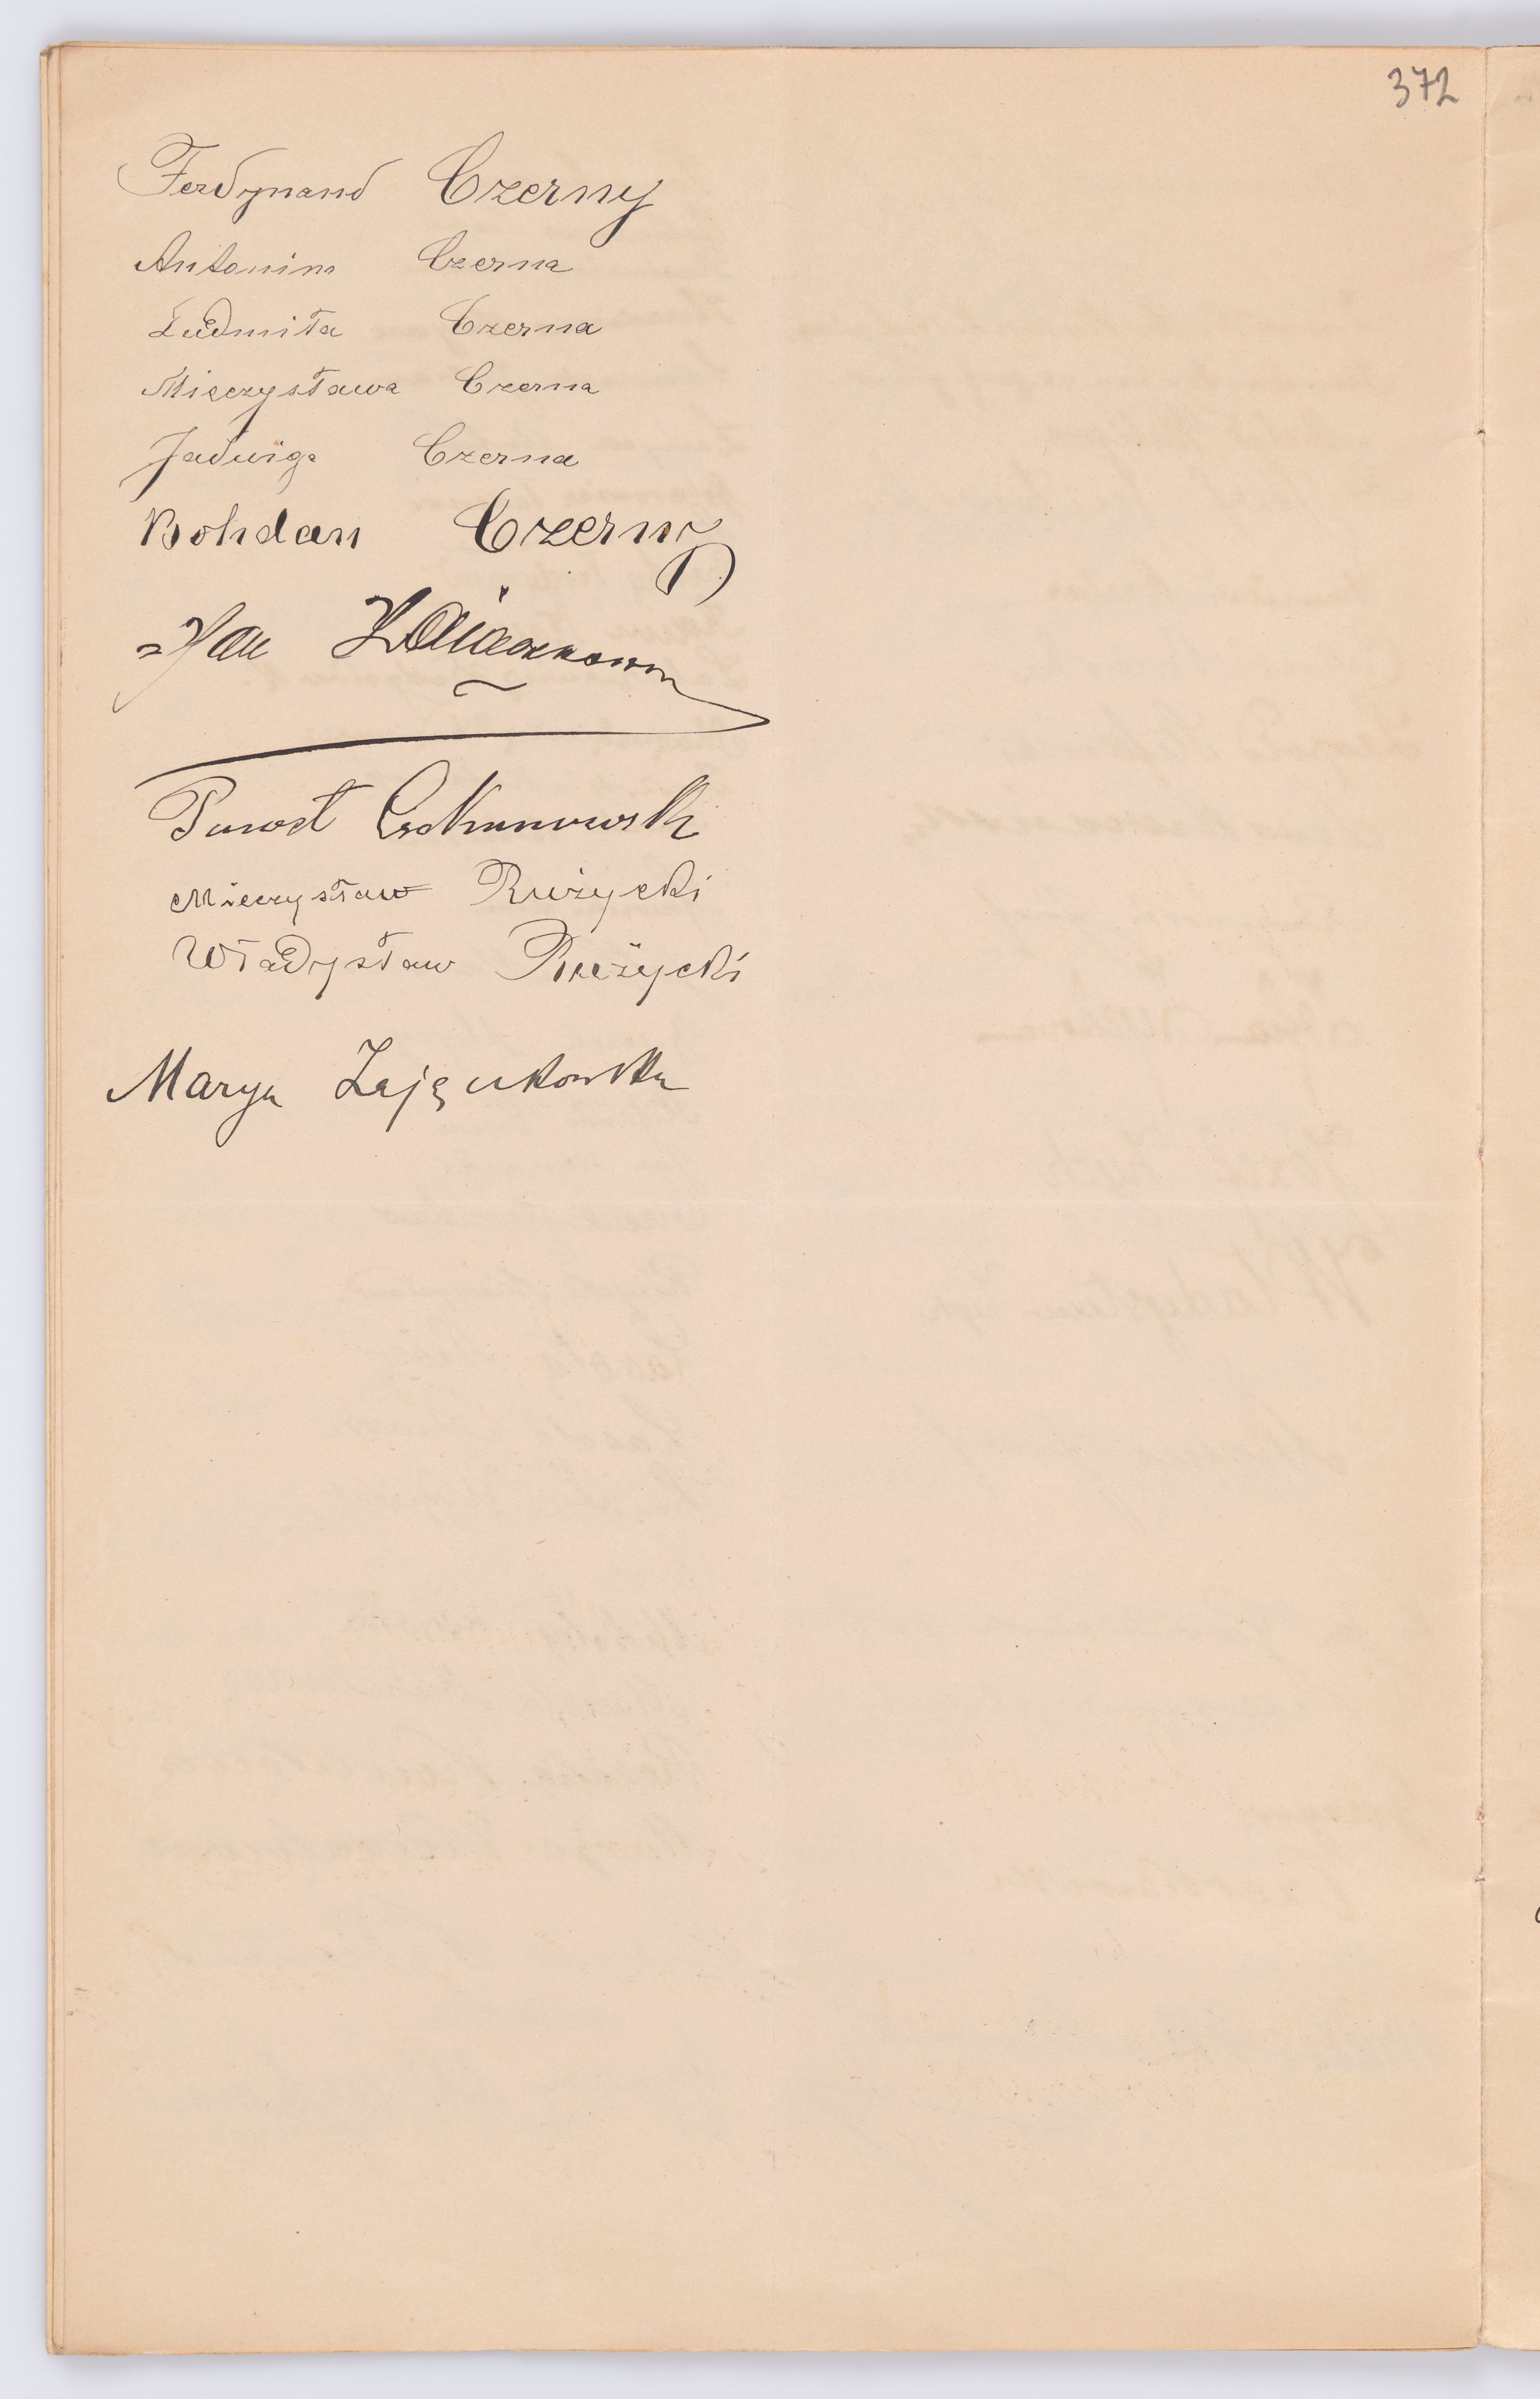 372
Ferdynand Czerny
Antonina Czerna
Ludmiła Czerna
Mieczysława Czerna
Jadwiga Czerna
Bohdan Czerny
Jan
Paweł
Mieczysław Rużycki
Władysław Rużycki
Marya Zajączkowska